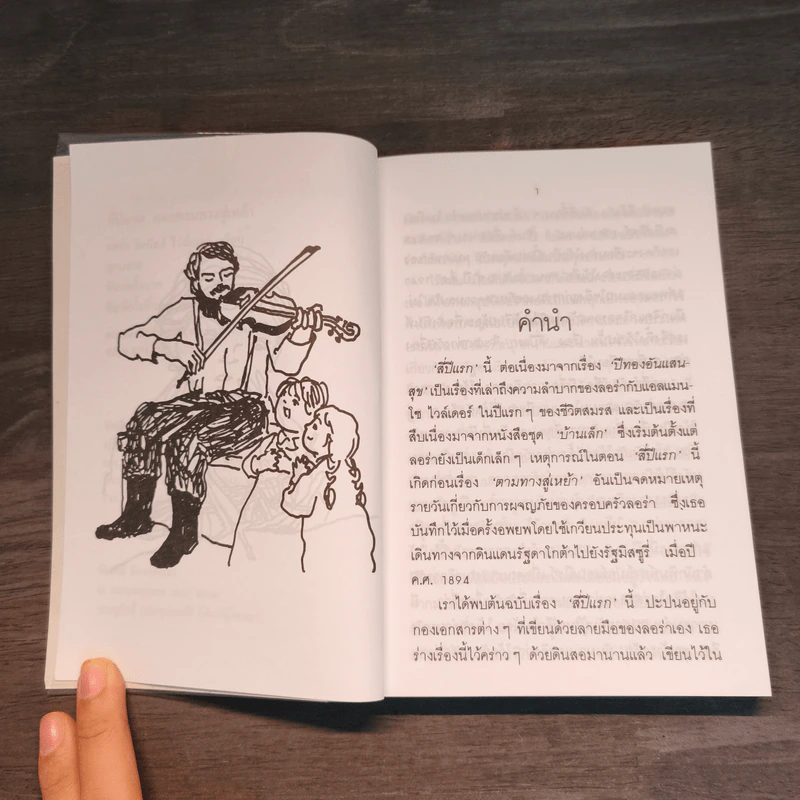 1
คำนำ
'สี่ปีแรก' นี้ ต่อเนื่องมาจากเรื่อง 'ปีทองอันแสน-
สุข' เป็นเรื่องที่เล่าถึงความลำบากของลอร่ากับแอลแมน-
โซ ไวล์เดอร์ ในปีแรก ๆ ของชีวิตสมรส และเป็นเรื่องที่
สืบเนื่องมาจากหนังสือชุด 'บ้านเล็ก' ซึ่งเริ่มต้นตั้งแต่
ลอร่ายังเป็นเด็กเล็ก ๆ เหตุการณ์ในตอน 'สี่ปีแรก' นี้
เกิดก่อนเรื่อง 'ตามทางสู่เหย้า' อันเป็นจดหมายเหตุ
รายวันเกี่ยวกับการผจญภัยของครอบครัวลอร่า ซึ่งเธอ
บันทึกไว้เมื่อครั้งอพยพโดยใช้เกวียนประทุนเป็นพาหนะ
เดินทางจากดินแดนรัฐดาโกต้าไปยังรัฐมิสซูรี่ เมื่อปี
ค.ศ. 1894
เราได้พบต้นฉบับเรื่อง 'สี่ปีแรก' นี้ ปะปนอยู่กับ
กองเอกสารต่าง ๆ ที่เขียนด้วยลายมือของลอร่าเอง เธอ
ร่างเรื่องนี้ไว้คร่าว ๆ ด้วยดินสอมานานแล้ว เขียนไว้ใน